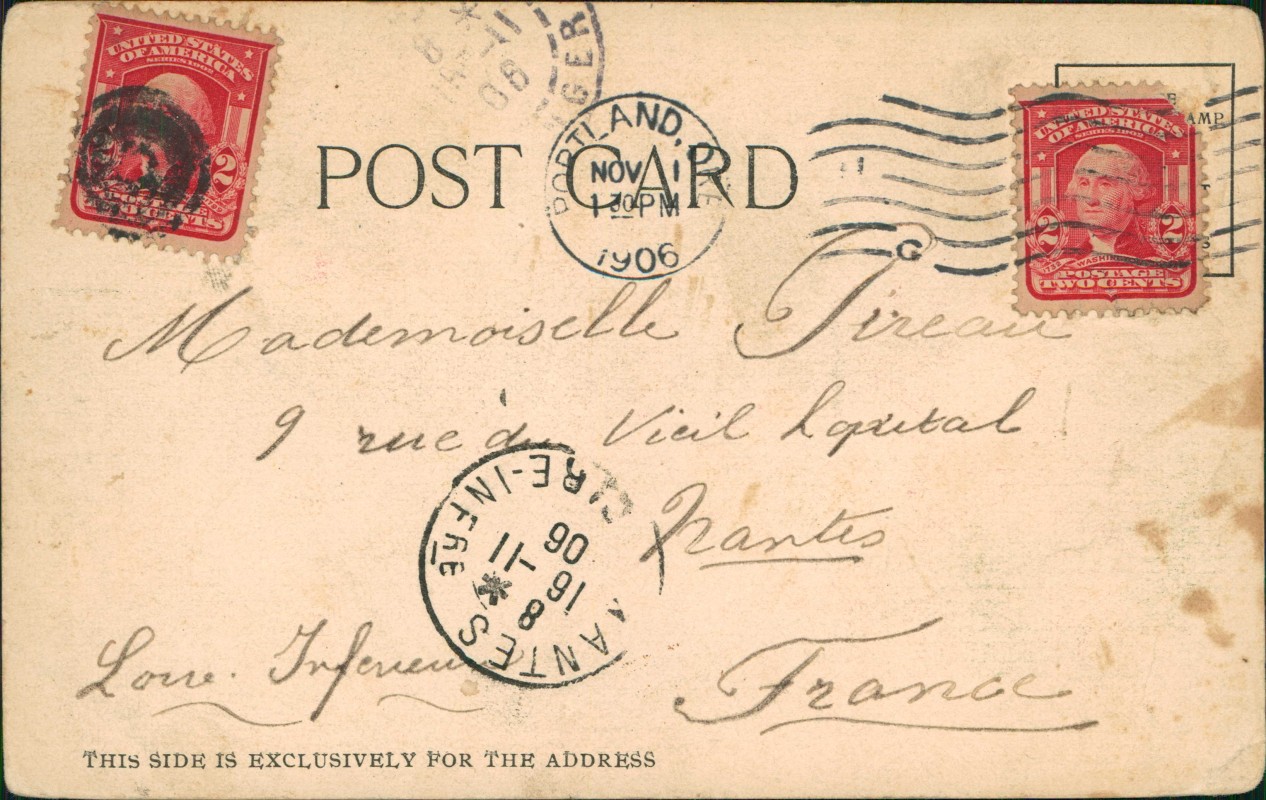 UNITED STATES
OF AMERICA
SERIES 1902
2 2
POSTAGE
CENTS
11
06
GER
POST CARD
PORTLAND,
NOV 1
1 30 PM
1906
G
AMP
UNITED STATES
OF AMERICA
SERIES 1902
2 2
POSTAGE
TWO CENTS
Mademoiselle Tireau
9 rue du Vieil hopital
Nantes
NANTES * LOIRE-INFRE
8
16
11
06
Loire. Inferieure
France
THIS SIDE IS EXCLUSIVELY FOR THE ADDRESS